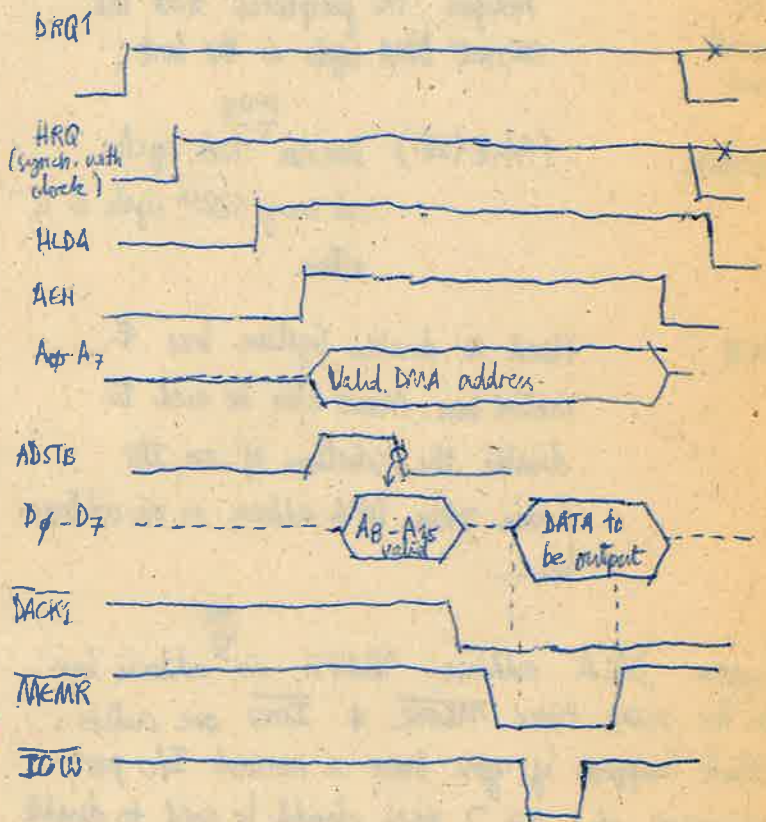 DRQ1
HRQ
(synch. with
clock)
HLDA
AEN
Aφ-A7
Valid DMA address
ADSTB
Dφ-D7
A8-A15
valid
DATA to
be output
DACK1
MEMR
IOW